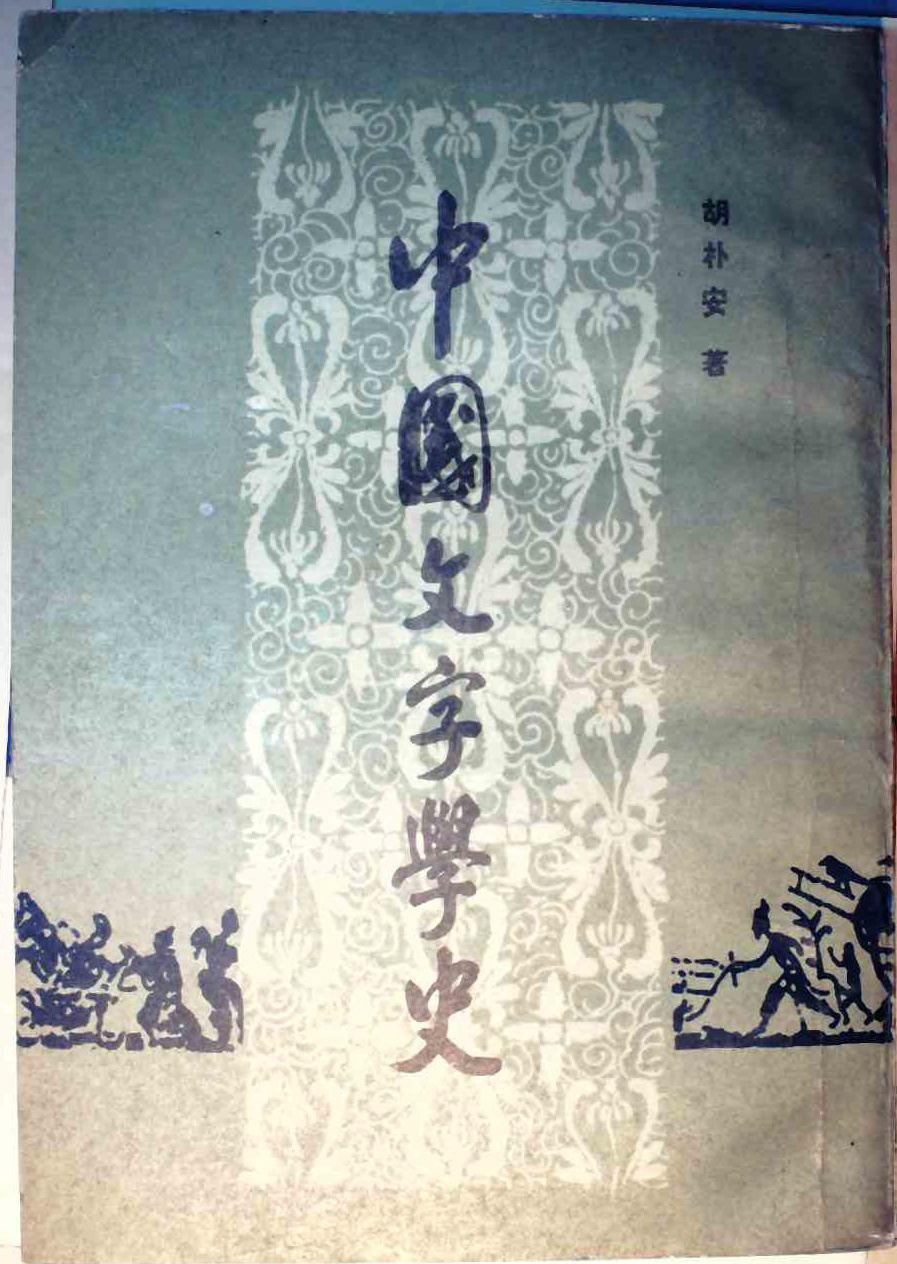 胡朴安 著
中國文字學史